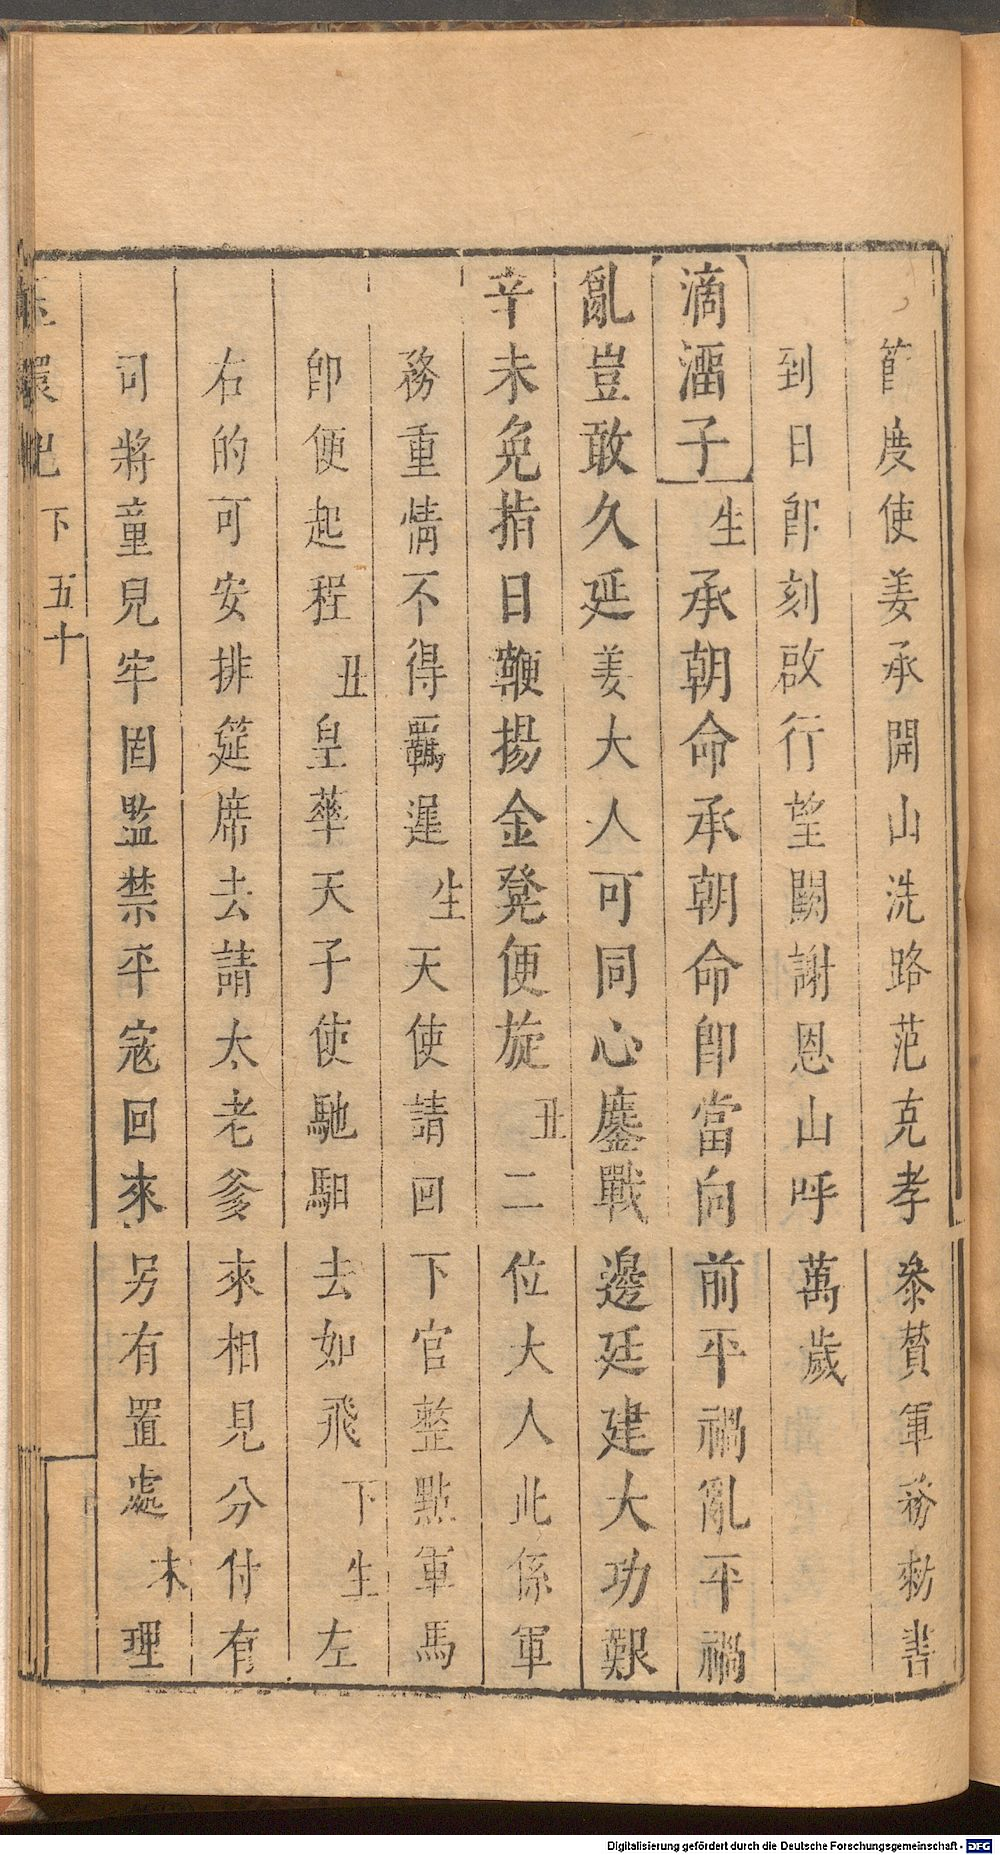 節度使姜承開山洗路范克孝叅賛軍務勑書
到日卽刻啟行望闕謝恩山呼萬歲
滴溜子生承朝命承朝命卽當向前平禍亂平禍
亂豈敢久延姜大人可同心鏖戰邊廷建大功艱
辛未免指日鞭揚金凳便旋丑二位大人此係軍
務重情不得羈遲生天使請回下官整點軍馬
卽便起程丑皇華天子使馳馹去如飛下生左
右的可安排筵席去請太老爹來相見分付有
司將童兒牢固監禁平寇回來另有置處末理
玉環記 下 五十
Digitalisierung gefördert durch die Deutsche Forschungsgemeinschaft - DFG